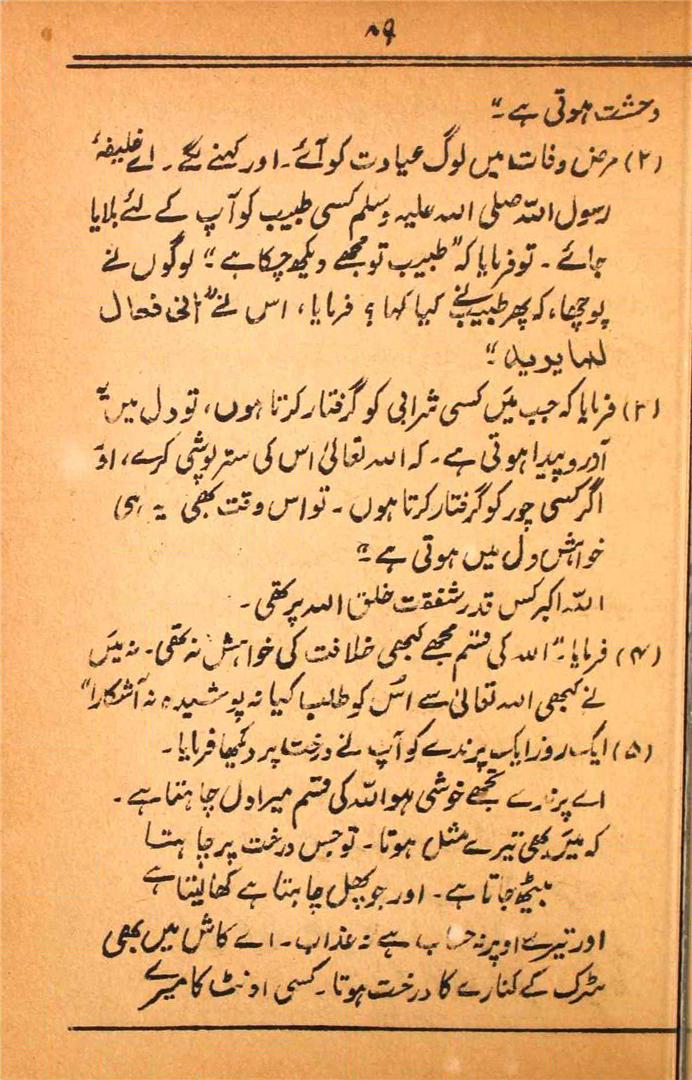 ۸۹
وحشت ہوتی ہے۔“
(۲) مرض وفات میں لوگ عیادت کو آئے۔ اور کہنے لگے۔ اے خلیفۂ
رسول اللہ صلی اللہ علیہ وسلم کسی طبیب کو آپ کے لئے بلایا
جائے۔ تو فرمایا کہ ”طبیب تو مجھے دیکھ چکا ہے“ لوگوں نے
پوچھا، کہ پھر طبیب نے کیا کہا؟ فرمایا، اس نے ”انی فعال
لما یرید“
(۳) فرمایا کہ جب میں کسی شرابی کو گرفتار کرتا ہوں، تو دل میں یہ
آرزو پیدا ہوتی ہے۔ کہ اللہ تعالیٰ اس کی ستر پوشی کرے، اور
اگر کسی چور کو گرفتار کرتا ہوں۔ تو اس وقت بھی یہ ہی
خواہش دل میں ہوتی ہے۔“
اللہ اکبر کس قدر شفقت خلق اللہ پر تھی۔
(۴) فرمایا۔ ”اللہ کی قسم مجھے کبھی خلافت کی خواہش نہ تھی۔ نہ میں
نے کبھی اللہ تعالیٰ سے اُس کو طلب کیا نہ پوشیدہ نہ آشکارا“
(۵) ایک روز ایک پرندے کو آپ نے درخت پر دیکھا فرمایا۔
اے پرندے تجھے خوشی ہو اللہ کی قسم میرا دل چاہتا ہے۔
کہ میں بھی تیرے مثل ہوتا۔ تو جس درخت پر چاہتا
بیٹھ جاتا ہے۔ اور جو پھل چاہتا ہے کھا لیتا ہے
اور تیرے اوپر نہ حساب ہے نہ عذاب۔ اے کاش میں بھی
سڑک کے کنارے کا درخت ہوتا۔ کسی اونٹ کا میرے